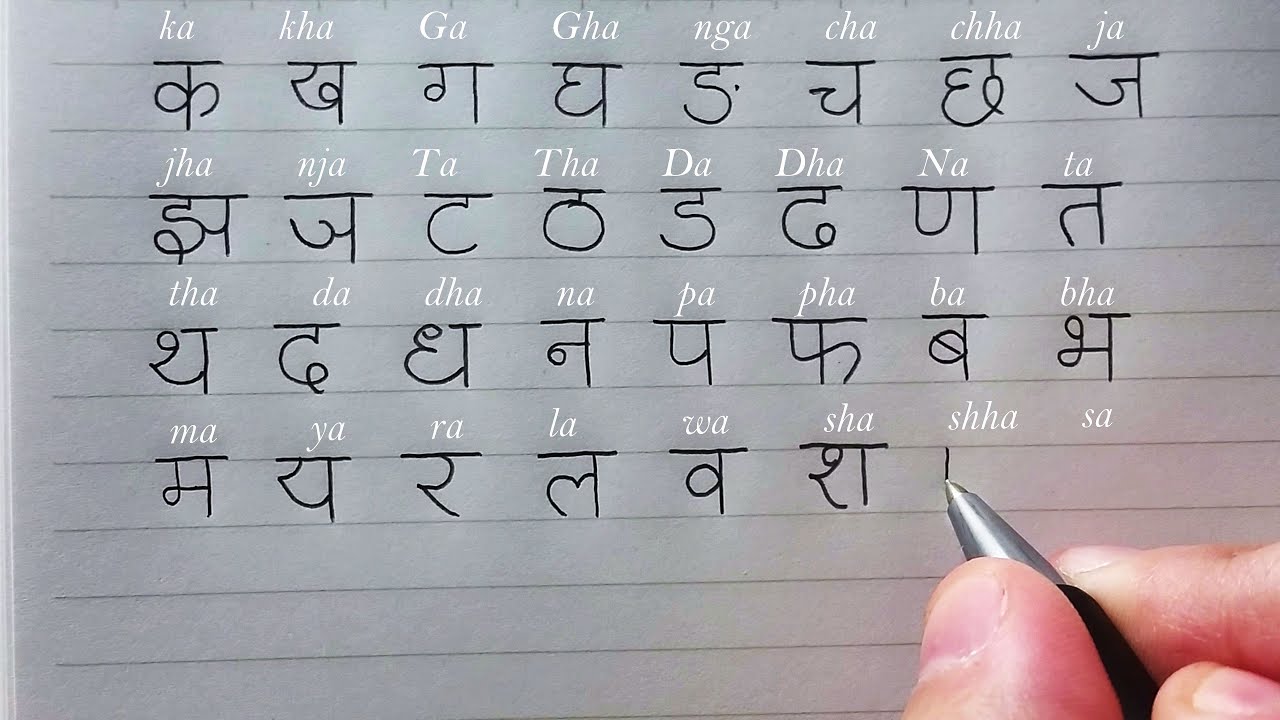 ka kha Ga Gha nga cha chha ja
क ख ग घ ङ च छ ज
jha nja Ta Tha Da Dha Na ta
झ ञ ट ठ ड ढ ण त
tha da dha na pa pha ba bha
थ द ध न प फ ब भ
ma ya ra la wa sha shha sa
म य र ल व श